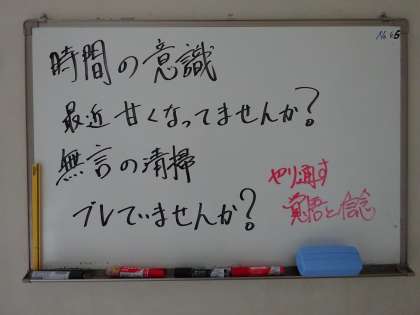 時間の意識
最近甘くなってませんか?
無言の清掃
ブレていませんか?
やり通す
覚悟と信念